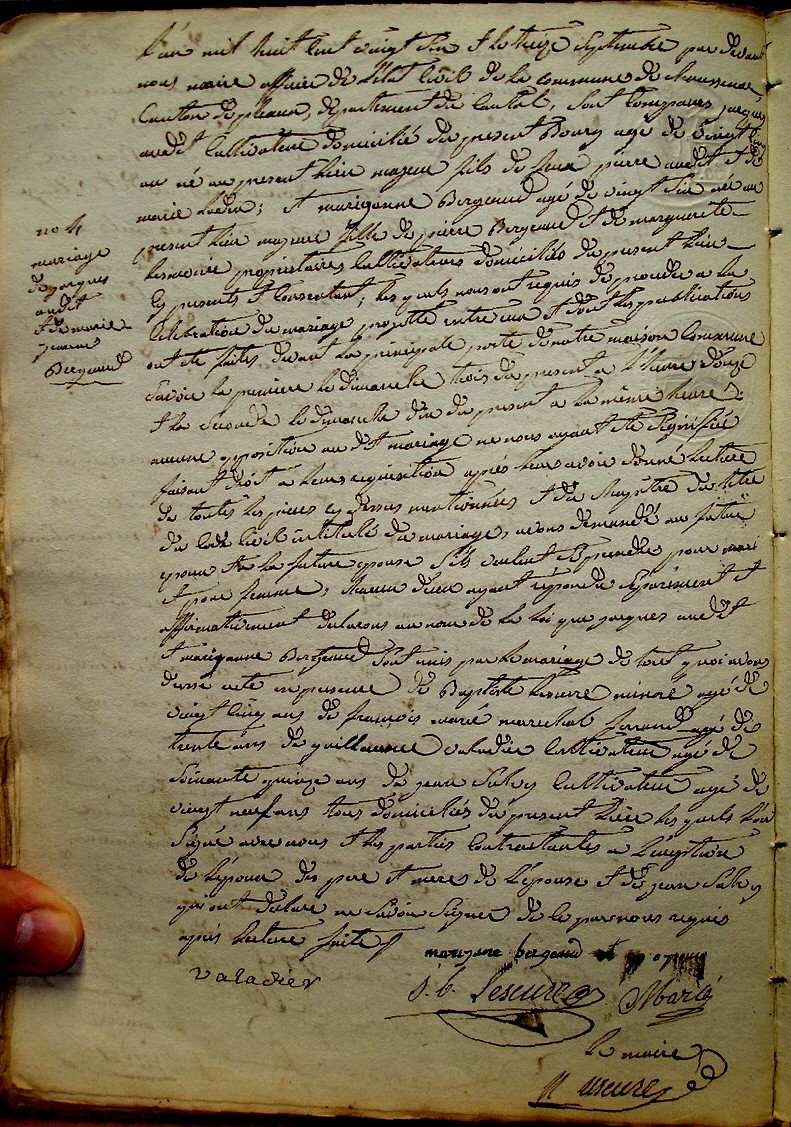 L'an mil huit cent vingt six et le treize Septembre par devant
nous maire officier de l'état Civil de la commune de
Canton de pleaux, département du Cantal, sont Comparus jacques
audit Cultivateur domicilié du present Bourg agé de vingt
an né au present lieu majeur fils de feux pierre audit et de
marie ; et mariganne Bergeaud agé de vingt six née au
present lieu majeure fille de pierre Bergeaud et de marguerite
propriétaires Cultivateurs domiciliés du present lieu
Cy presents et Consentant, les quels nous ont requis de proceder a la
Celebration du mariage projetté entre eux et dont les publications
ont été faites devant la principale porte de notre maison Commune
Savoir la premiere le dimanche trois du present a l'heure douze
et la Seconde le dimanche dix du present a la même heure
aucune opposition au dit mariage ne nous ayant été Signifiée
faisant droit a leur requisition après leur avoir donné lecture
de toutes les pieces cy dessus mentionnées et du Chapitre du titre
du Code Civil intitulé du mariage, avons demandé au futur
epoux et a la future epouse s'ils veulent se prendre pour mari
et pour femme, chacun d'eux ayant repondu separement et
affirmativement declarons au nom de la loi que jacques audit
et mariganne Bergeaud sont unis par le mariage de tout quoi avons
dressé acte en presence de Baptiste Lescure minore agé de
vingt cinq ans de françois marié marechal ferrand agé de
trente ans de guillaume valadier Cultivateur agé de
Soixante quinze ans de jean Cultivateur agé de
vingt neuf ans tous domiciliés du present lieu les quels l'on
Signé avec nous et les parties Contractantes a l'exception
de l'époux des pere et meres de l'épouse et de jean
qui ont declaré ne Savoir Signer de ce par nous requis
après lecture faite
no 4
mariage
de jacques
audit
et de marie
jeanne
Bergeaud
marigane bergeaud
valadier
j. b. Lescure Marié
le maire
Lescure